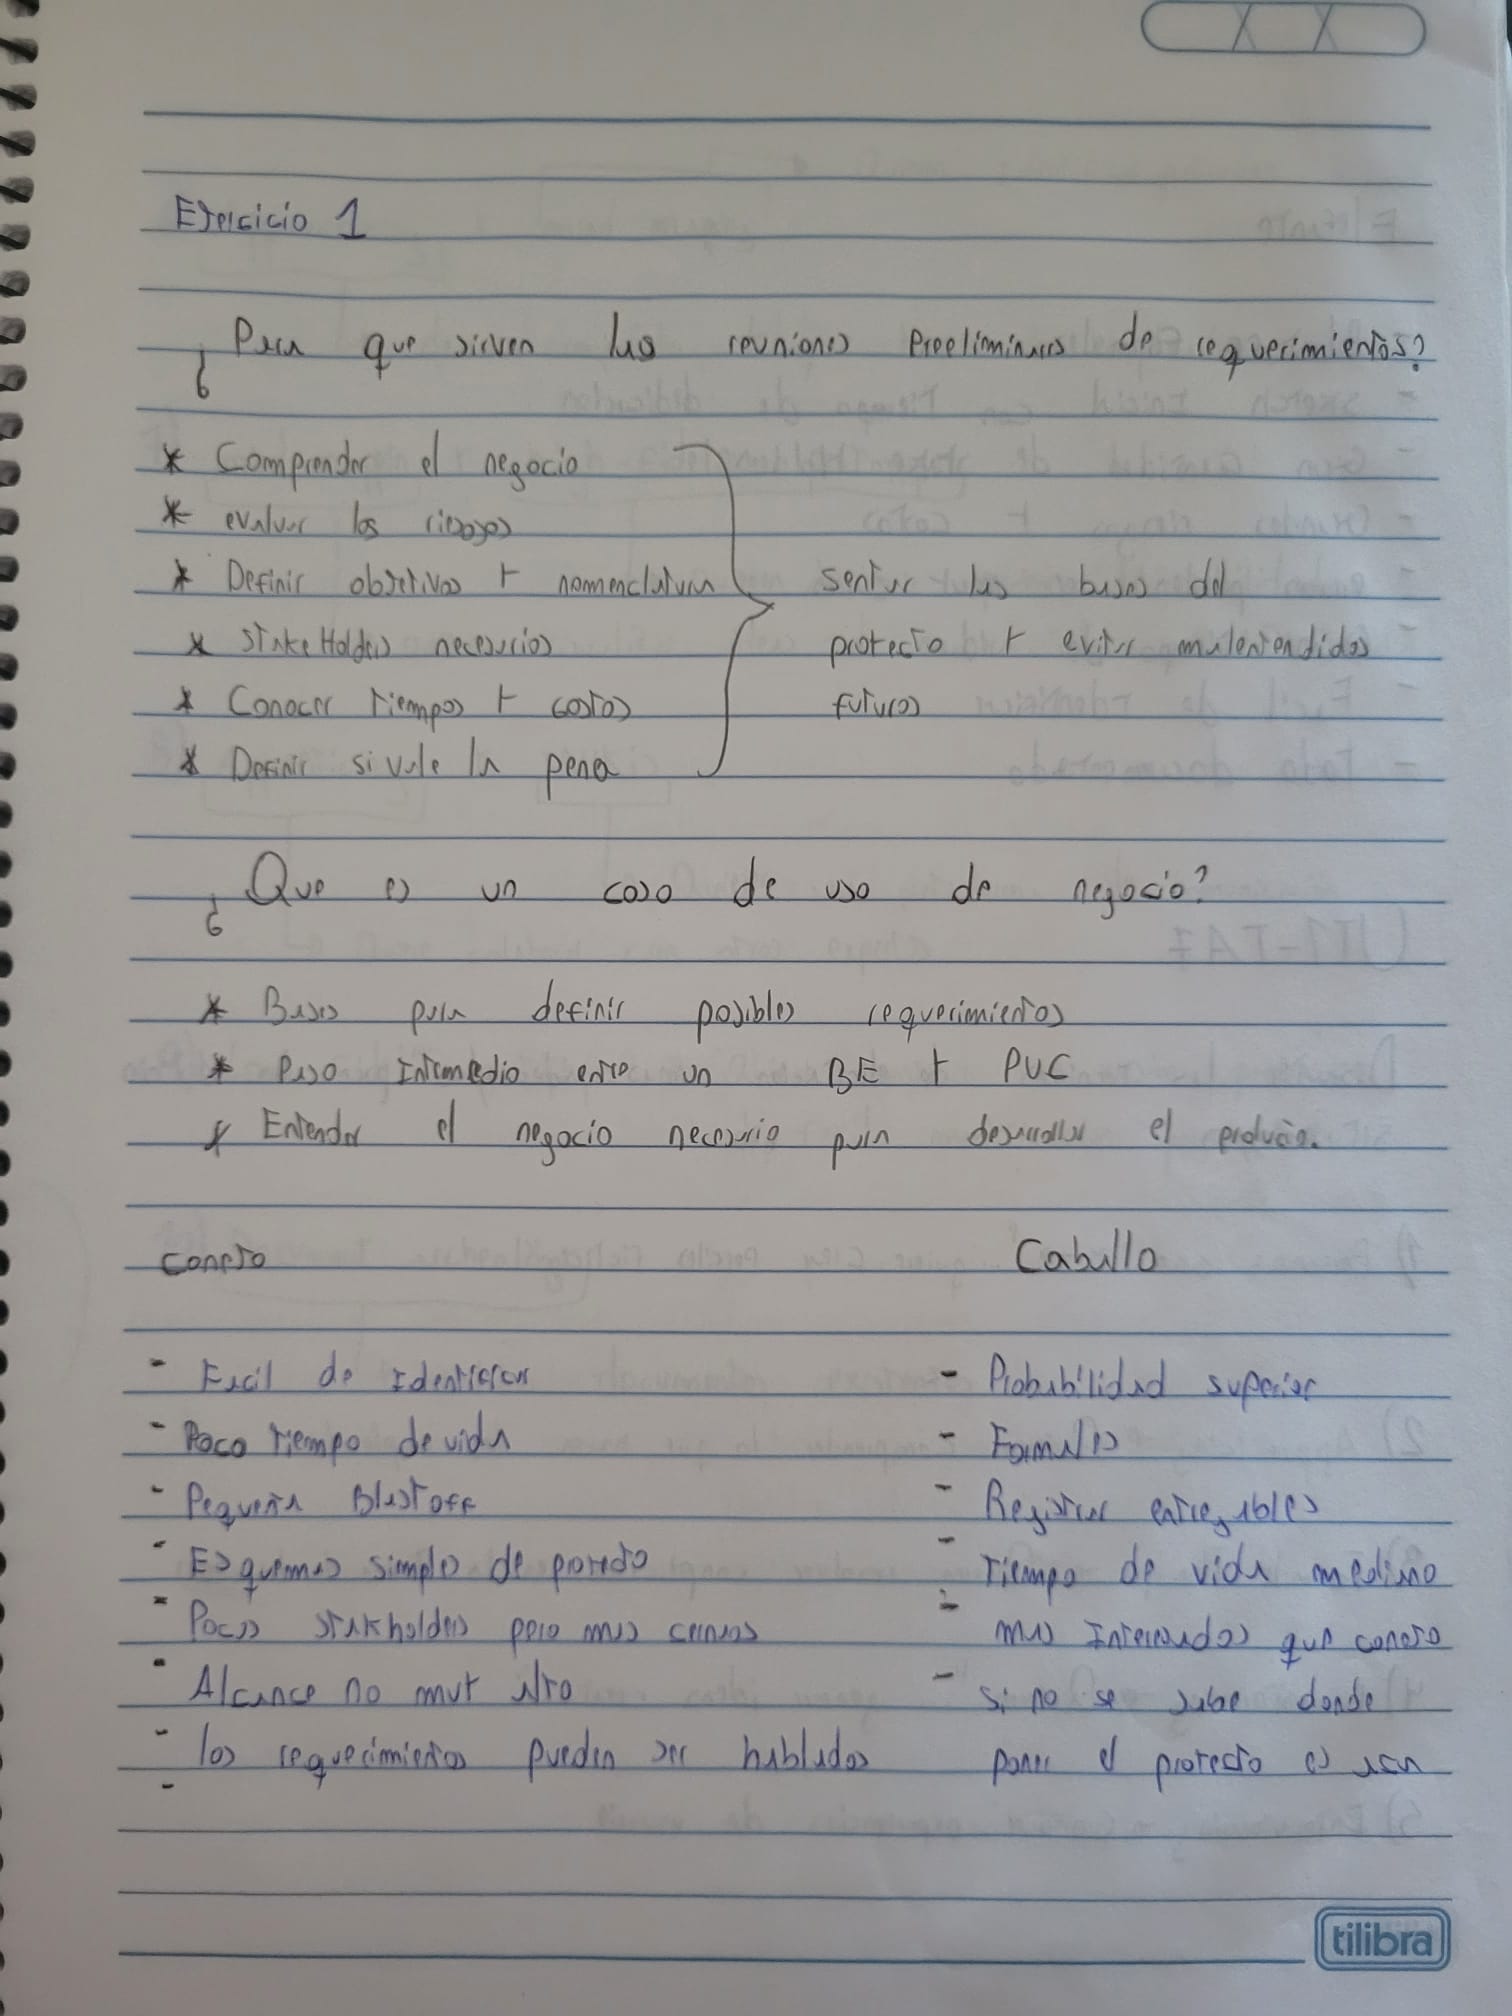 Ejercicio 1
¿Para que sirven las reuniones Preeliminares de requerimientos?
* Comprender el negocio
* evaluar los riesgos
* Definir objetivos y nomenclatura
* StakeHolders necesarios
* Conocer tiempos y costos
* Definir si vale la pena
sentar las bases del
proyecto y evitar malentendidos
futuros
¿Que es un caso de uso de negocio?
* Bases para definir posibles requerimientos
* Paso Intermedio entre un BE y PUC
* Entender el negocio necesario para desarrollar el producto.
conejo
- Facil de Identificar
- Poco tiempo de vida
- Pequeña Blastoff
- Esquemas simples de
- Pocos stakholders pero mas cercanos
- Alcance no muy alto
- los requerimientos pueden ser hablados
-
Caballo
- Probabilidad superior
- Formales
- Registrar entregables
- Tiempo de vida mediano
- mas Interesados que conejo
- si no se sabe donde
poner el proyecto es aca
tilibra